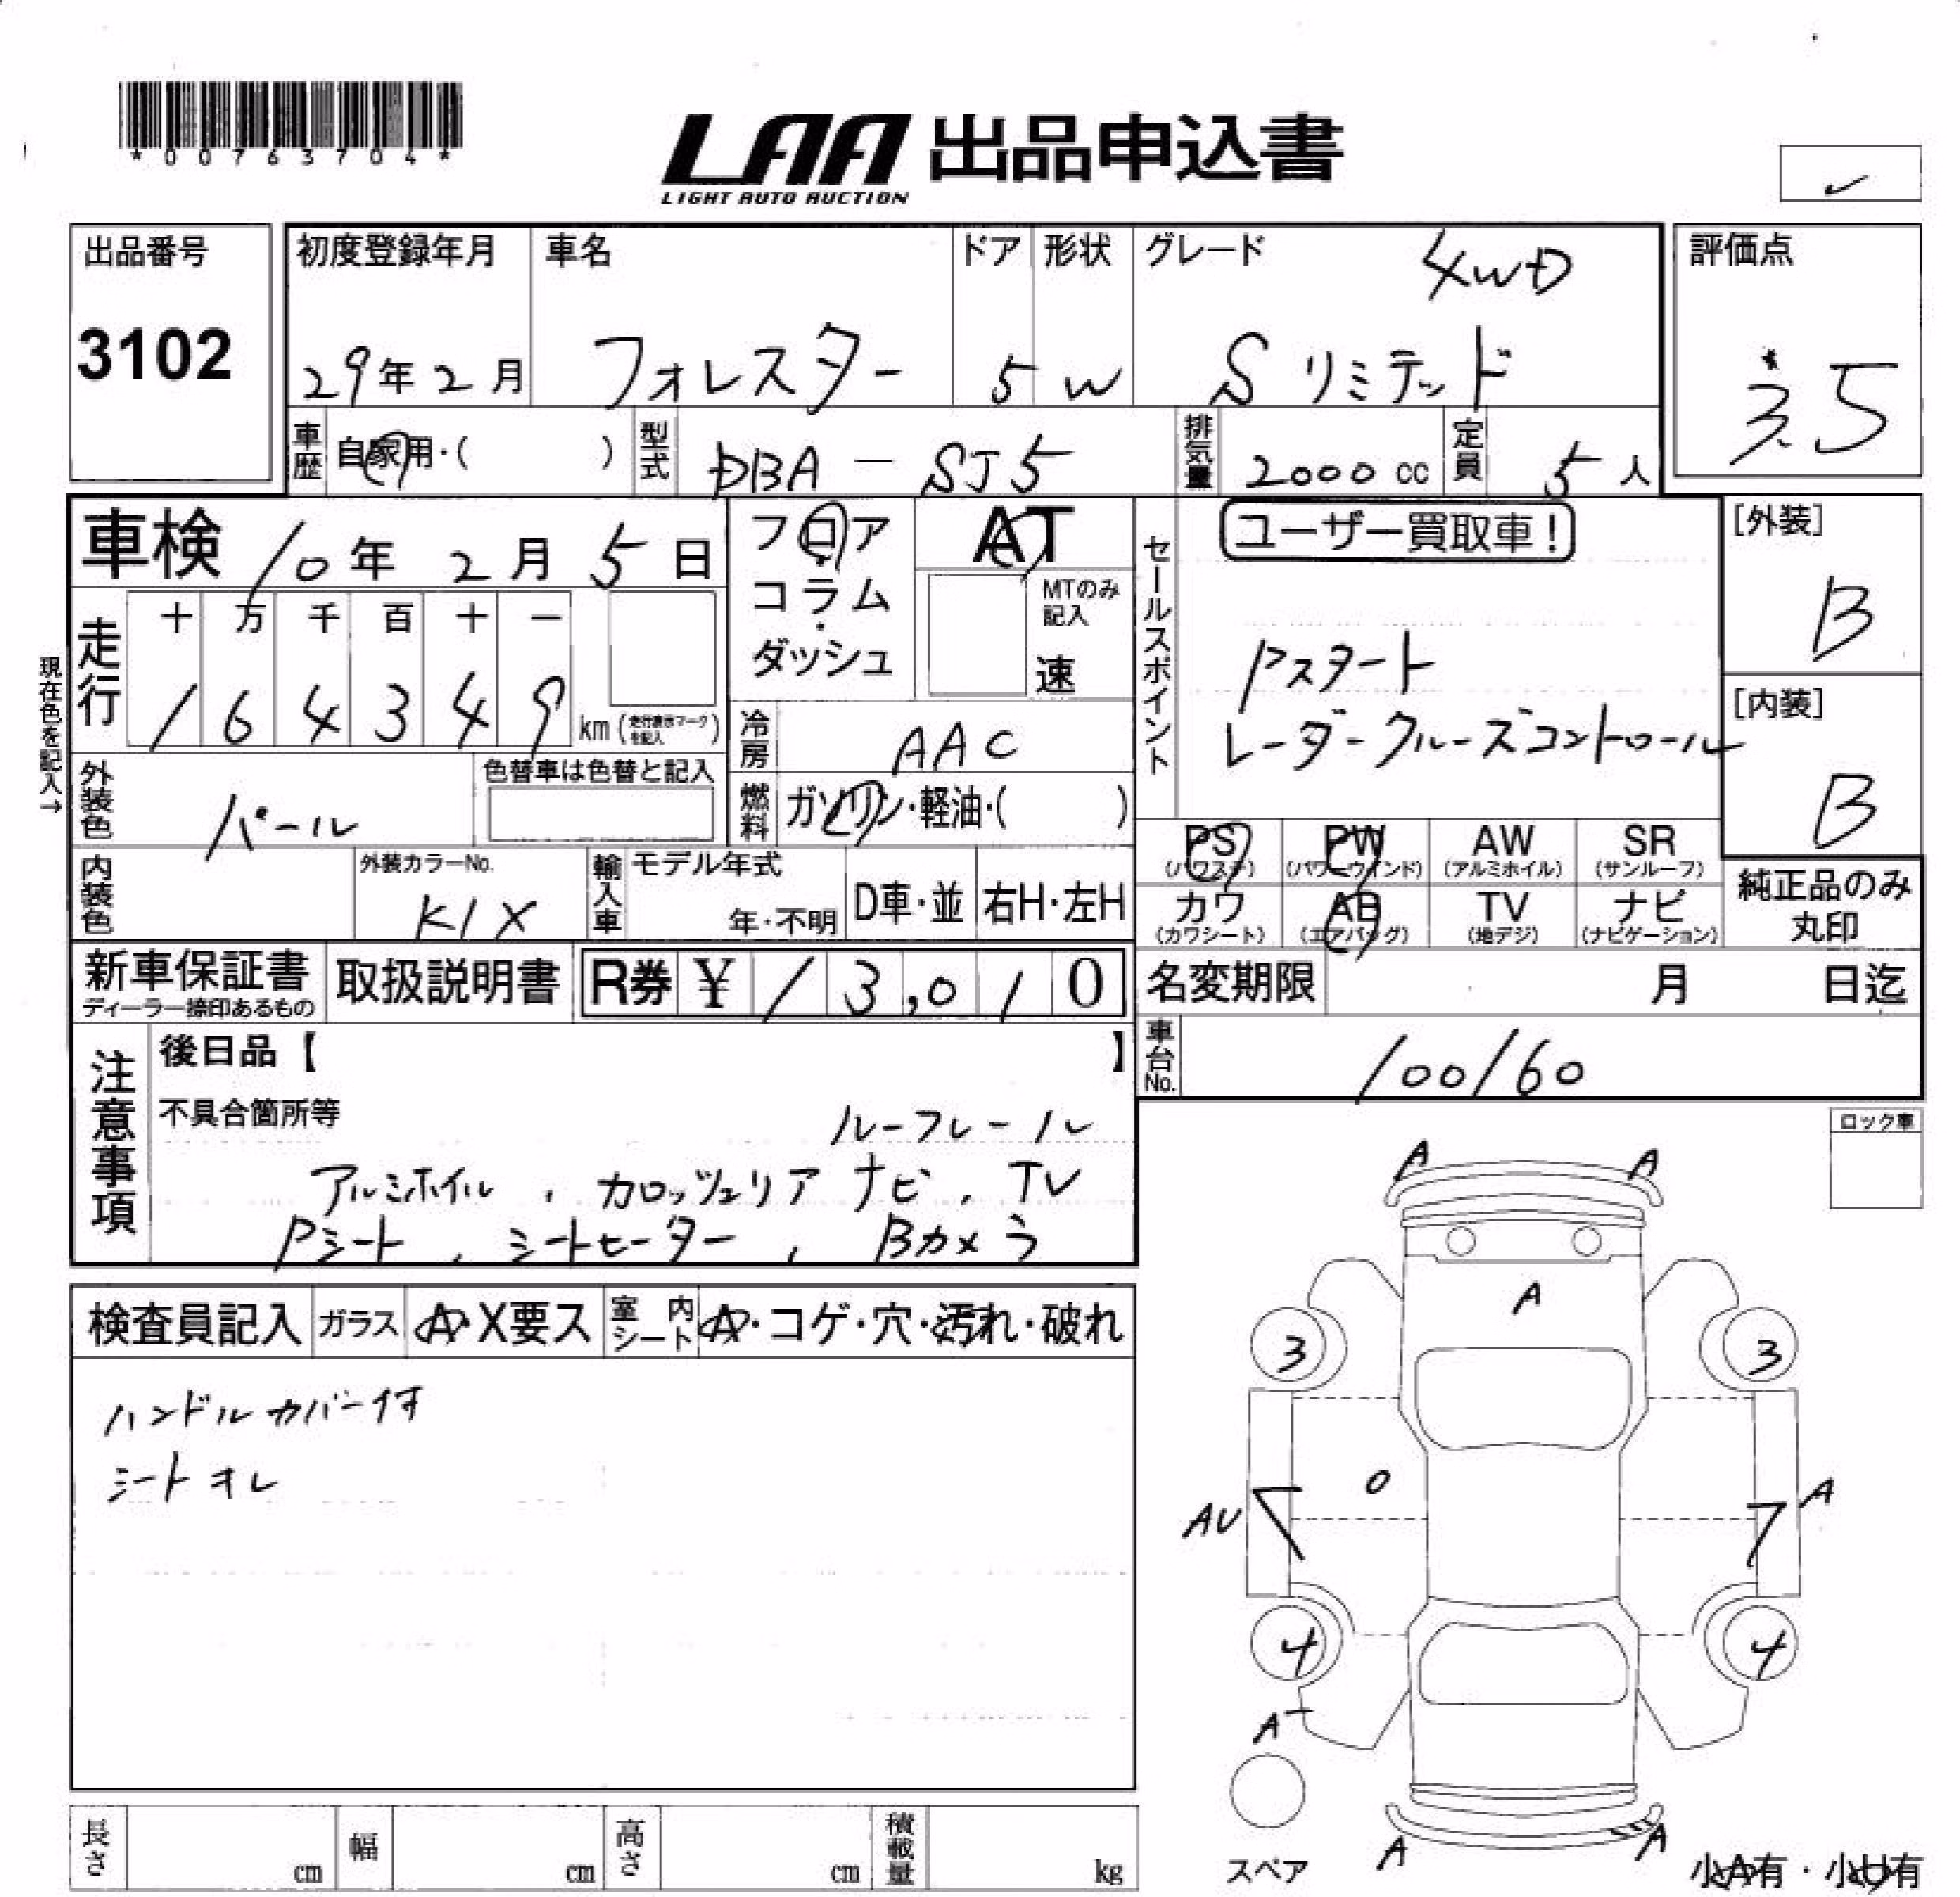 *00763704*
LAA 出品申込書
LIGHT AUTO AUCTION
出品番号
3102
初度登録年月
29年2月
車名
フォレスター
ドア
5
形状
W
グレード 4WD
Sリミテッド
評価点
3.5
車歴 自家用・( )
型式 DBA-SJ5
排気量 2000cc
定員 5人
車検 10年2月5日
走行 十 万 千 百 十 一
1 6 4 3 4 9 km (走行表示マークを記入)
現在色を記入→
外装色 パール
色替車は色替と記入
内装色
外装カラーNo.
K1X
フロア・コラム・ダッシュ
AT
MTのみ記入
速
冷房 AAC
燃料 ガソリン・軽油・( )
輸入車 モデル年式
年・不明
D車・並
右H・左H
セールスポイント
ユーザー買取車!
Pスタート
レーダークルーズコントロール
[外装]
B
[内装]
B
PS (パワステ)
PW (パワーウインド)
AW (アルミホイル)
SR (サンルーフ)
カワ (カワシート)
AB (エアバッグ)
TV (地デジ)
ナビ (ナビゲーション)
純正品のみ丸印
新車保証書
ディーラー捺印あるもの
取扱説明書
R券 ¥ 13,010
名変期限 月 日迄
車台No. 100/60
注意事項
後日品【 】
不具合箇所等
ルーフレール
アルミホイル, カロッツェリアナビ, TV
Pシート, シートヒーター, Bカメラ
ロック車
検査員記入
ガラス A・X要ス
室内シート A・コゲ・穴・汚れ・破れ
ハンドルカバー付
シートオレ
A A
A
3 3
0
AU A
4 4
A-
A A
スペア
小A有・小U有
長さ cm
幅 cm
高さ cm
積載量 kg